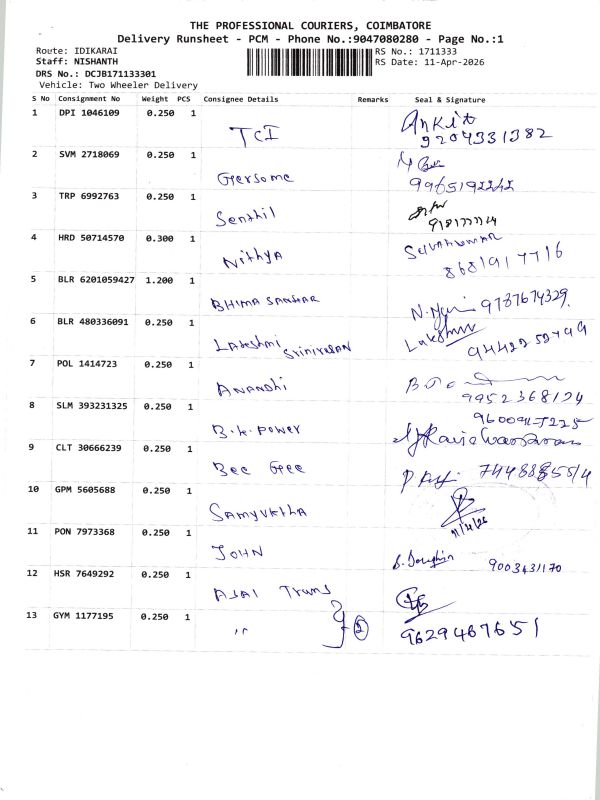 THE PROFESSIONAL COURIERS, COIMBATORE
Delivery Runsheet - PCM - Phone No.:9047080280 - Page No.:1
Route: IDIKARAI RS No.: 1711333
Staff: NISHANTH RS Date: 11-Apr-2026
DRS No.: DCJB171133301
Vehicle: Two Wheeler Delivery
S No Consignment No Weight PCS Consignee Details Remarks Seal & Signature
1 DPI 1046109 0.250 1
TCI Ankit
9204331382
2 SVM 2718069 0.250 1
Gersome
3 TRP 6992763 0.250 1
Senthil
4 HRD 50714570 0.300 1
Nithya Selvakumar
8681917716
5 BLR 6201059427 1.200 1
BHIMA SANKAR 9787674329
6 BLR 480336091 0.250 1
Lakshmi Srinivasan Lakshmi
7 POL 1414723 0.250 1
Anandhi
9952368124
8 SLM 393231325 0.250 1
B.K. Power
9 CLT 30666239 0.250 1
Bee Gee
10 GPM 5605688 0.250 1
Samyuktha
11/4/26
11 PON 7973368 0.250 1
JOHN 9003431170
12 HSR 7649292 0.250 1
AJAI Trans
13 GYM 1177195 0.250 1
〃 2 9629467651